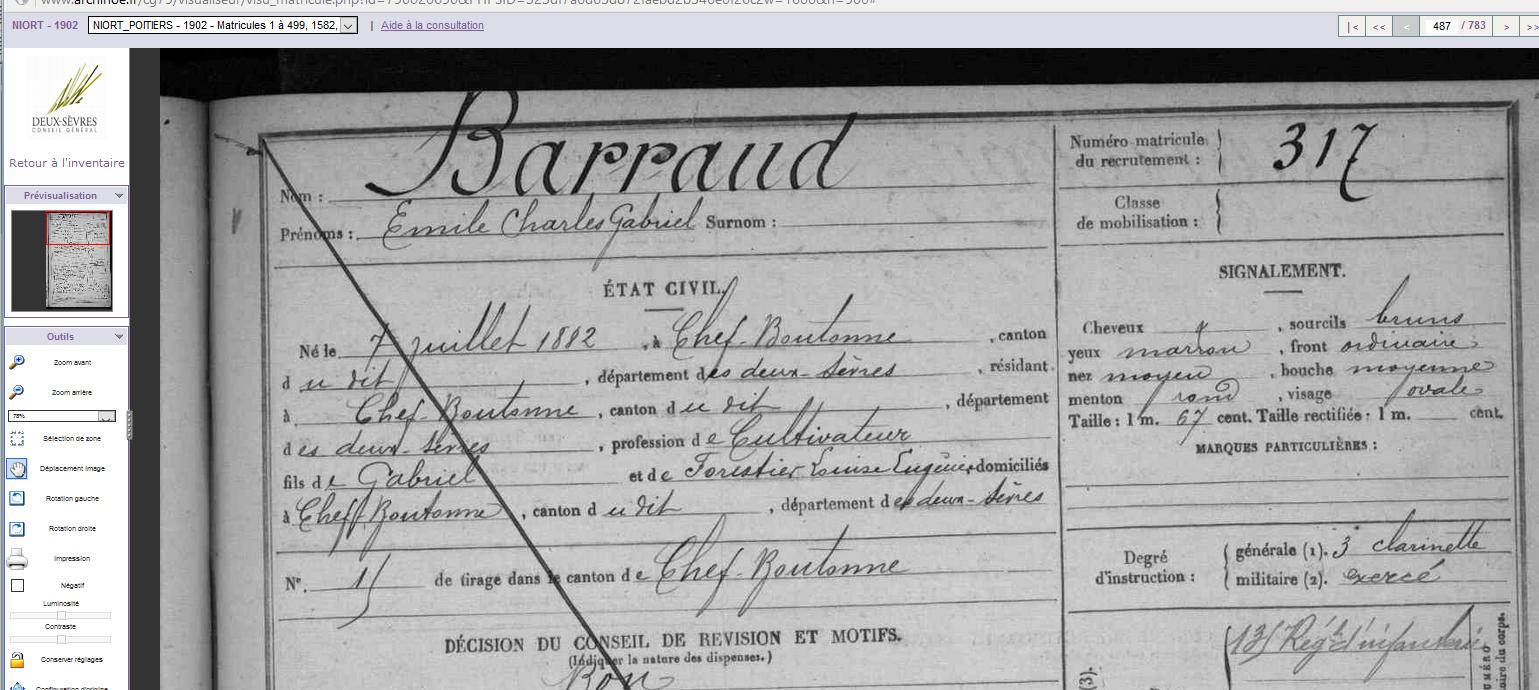 NIORT - 1902 NIORT_POITIERS - 1902 - Matricules 1 à 499, 1582, | Aide à la consultation |< << < 487 / 783 > >>
DEUX-SÈVRES
CONSEIL GÉNÉRAL
Retour à l'inventaire
Prévisualisation
Outils
Zoom avant
Zoom arrière
78%
Sélection de zone
Déplacement Image
Rotation gauche
Rotation droite
Impression
Négatif
Luminosité
Contraste
Conserver réglages
Configuration d'origine
Nom : Barraud
Prénoms : Emile Charles Gabriel Surnom :
ÉTAT CIVIL.
Né le 7 juillet 1882, à Chef-Boutonne, canton
du dit, département des deux-Sèvres, résidant
à Chef-Boutonne, canton du dit, département
des deux-Sèvres, profession de Cultivateur
fils de Gabriel et de Forestier Louise Eugénie, domiciliés
à Chef Boutonne, canton du dit, département des deux-Sèvres
N°. de tirage dans le canton de Chef-Boutonne
DÉCISION DU CONSEIL DE REVISION ET MOTIFS.
(Indiquer la nature des dispenses.)
Bon
Numéro matricule
du recrutement : 317
Classe
de mobilisation :
SIGNALEMENT.
Cheveux, sourcils bruns
yeux marron, front ordinaire
nez moyen, bouche moyenne
menton rond, visage ovale
Taille : 1 m. 67 cent. Taille rectifiée : 1 m. cent.
MARQUES PARTICULIÈRES :
Degré
d'instruction :
générale (1). 3 clarinette
militaire (2). exercé
Régt d'infanterie
(3).
NUMÉRO